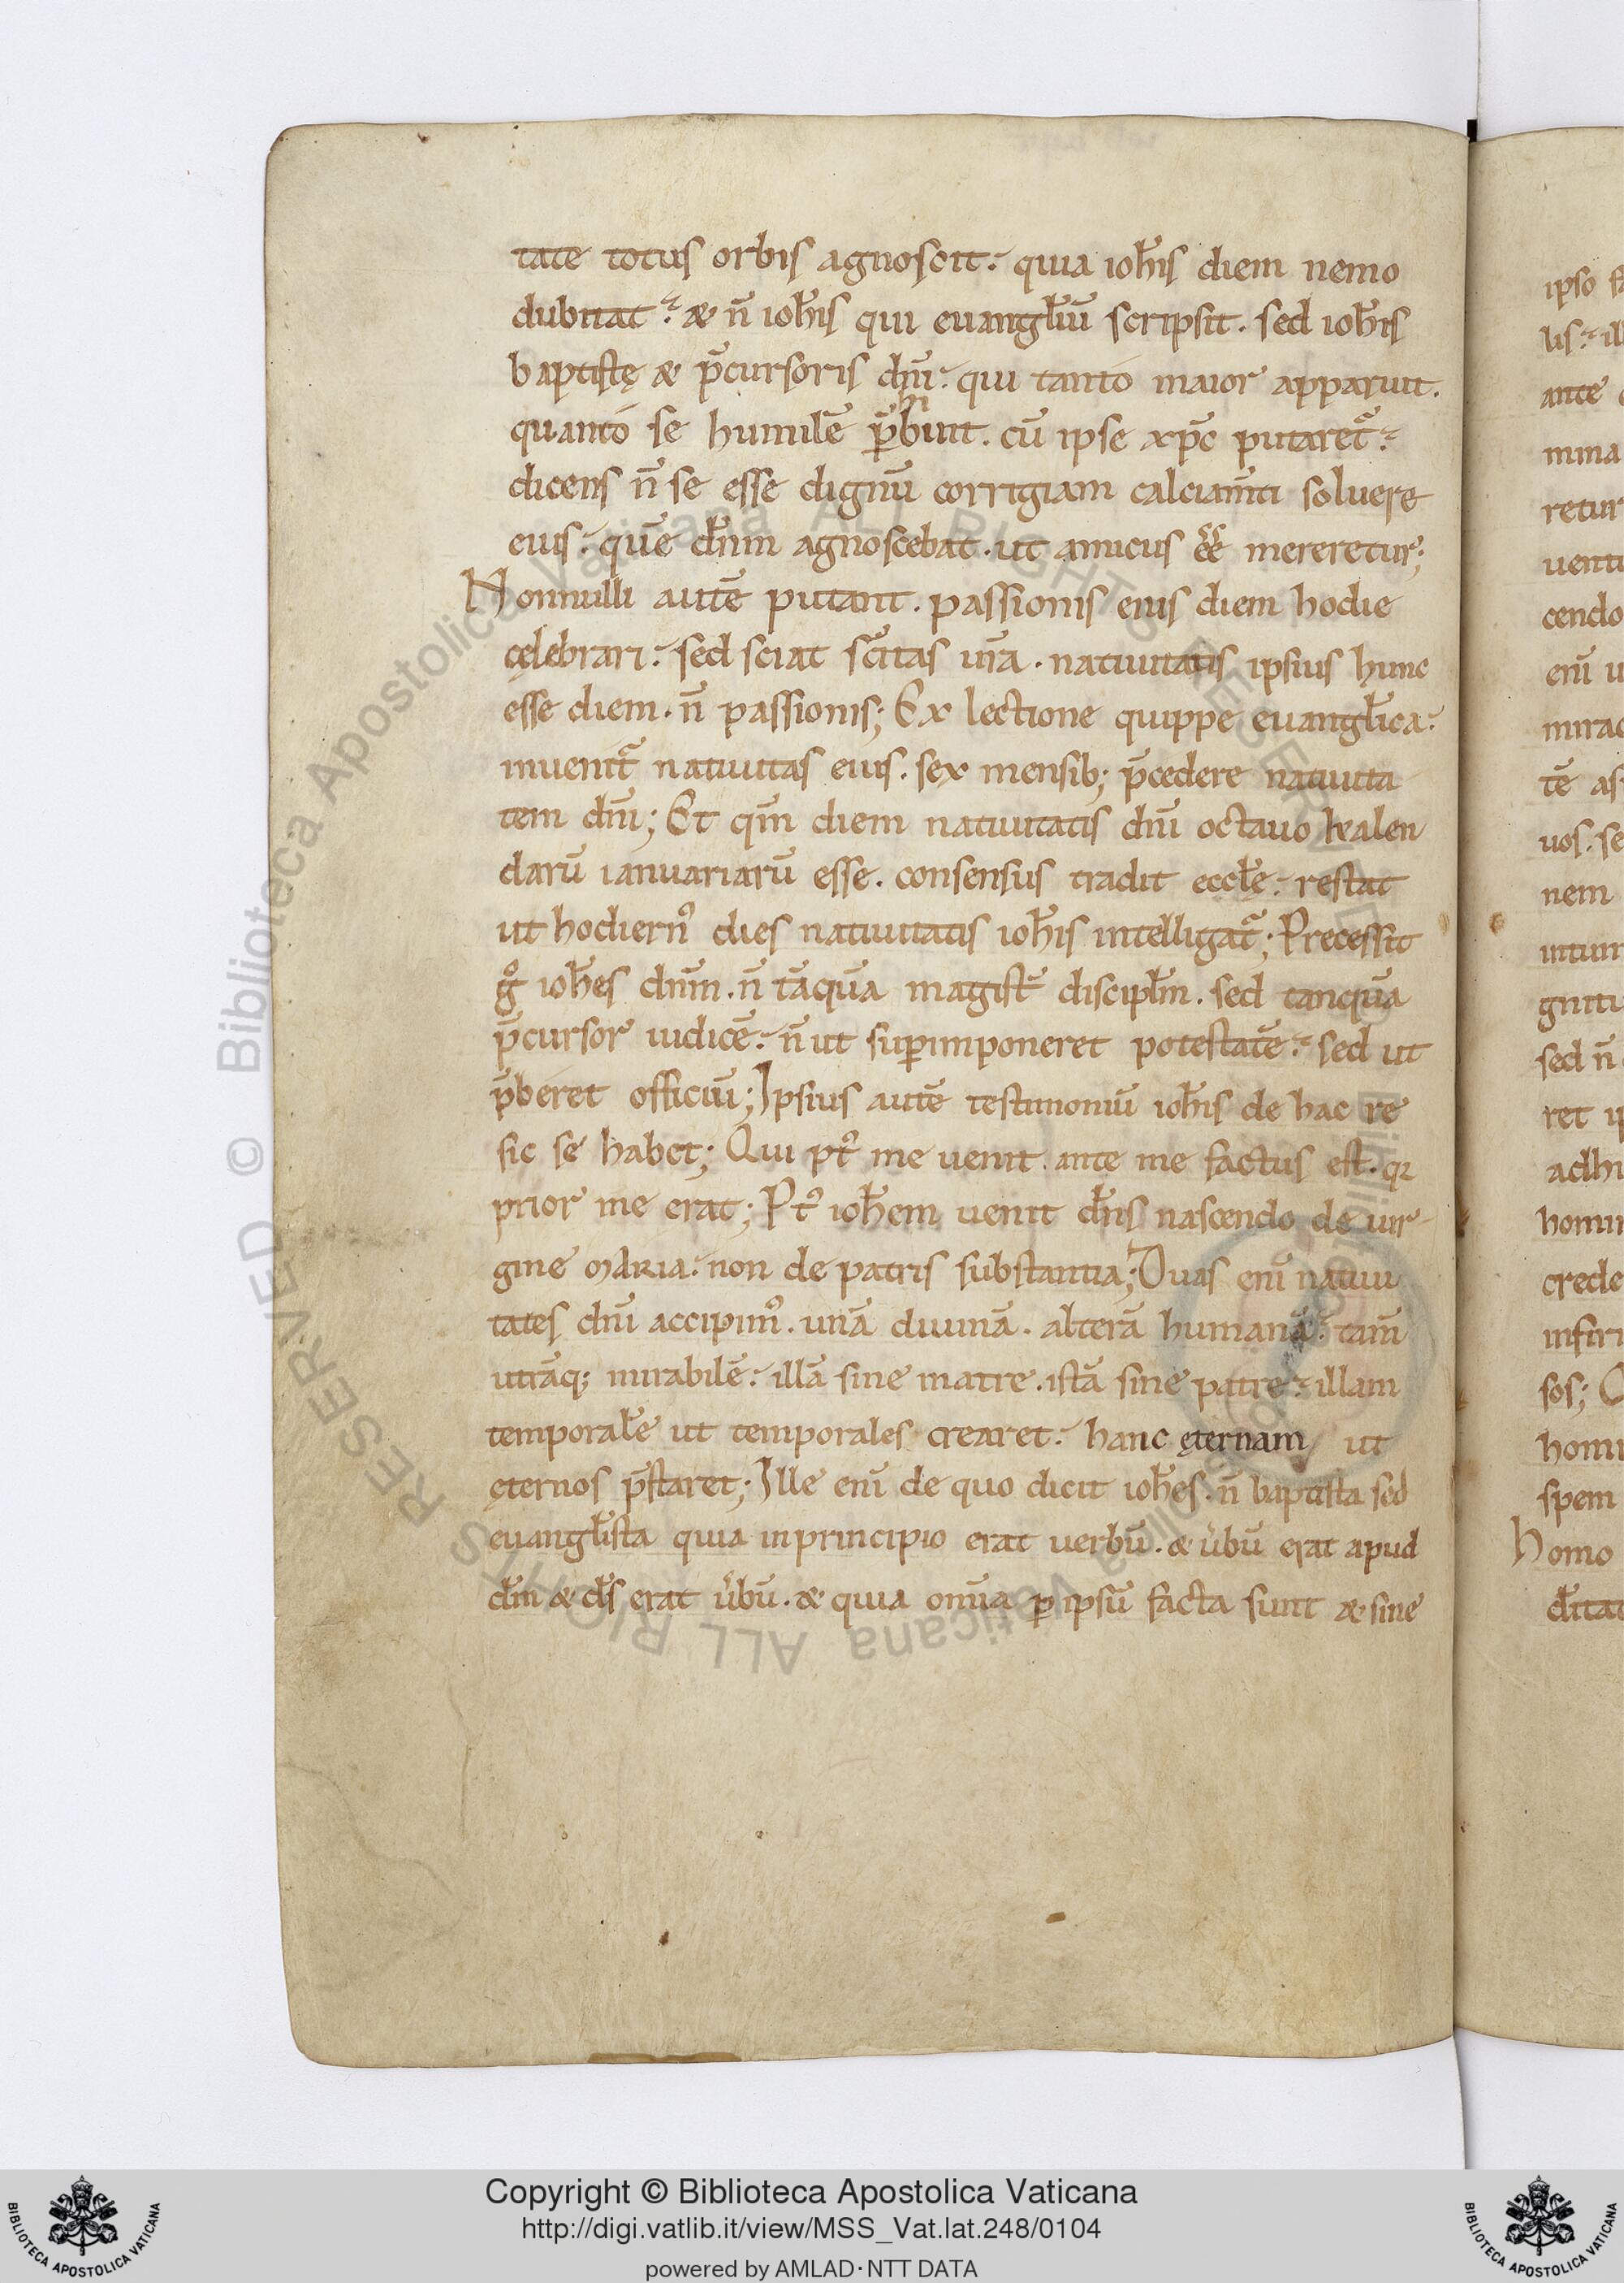 tate totus orbis agnoscit. quia ioh̄is diem nemo
dubitat. & n̄ ioh̄is qui euangl̄iū scripsit. sed ioh̄is
baptistę & p̄cursoris dn̄i. qui tanto maior apparuit.
quanto se humilē p̄hibuit. cū ipse xp̄c putaret᷑.
dicens n̄ se esse dignū corrigiam calciam̄ti soluere
eius. quē dn̄m agnoscebat. ut amicus ee̅ mereretur;
Nonnulli autē putant. passionis eius diem hodie
cęlebrari. sed sciat sc̄itas ur̄a. natiuitatis ipsius hunc
esse diem. n̄ passionis; Ex lectione quippe euangl̄ica.
inuenit᷑ natiuitas eius. sex mensib; p̄cedere natiuita
tem dn̄i; Et qm̄ diem natiuitatis dn̄i octauo kalen
darū ianuariarū esse. consensus tradit eccl̄ę. restat
ut hodiernꝰ dies natiuitatis ioh̄is intelligat᷑; Precessit
gͦ ioh̄es dn̄m. n̄ tāquā magist̄ discipl̄m. sed tanquā
p̄cursor iudicē. n̄ ut suꝑimponeret potestatē. sed ut
p̄beret officiū; Ipsius autē testimoniū ioh̄is de hac re
sic se habet; Qui pt̓ me uenit. ante me factus est. qꝛ
prior me erat; Pt̓ ioh̄em uenit dn̄s nascendo de uir-
gine maria. non de patris substantia; Duas eni̅ natiui
tates dn̄i accipimꝰ. unā diuinā. alterā humanā. tam̄
utrāq; mirabilē. illā sine matre. istā sine patre. illam
temporal̄e ut temporales crearet. hanc ęternam ut
ęternos p̄staret; Ille eni̅ de quo dicit ioh̄es. n̄ baptista sed
euangl̄ista quia in principio erat uerbū. & u̓bū erat apud
dm̄ & ds̄ erat u̓bū. & quia omīa ꝑ ipsū facta sunt & sine
ipso
lis. ill
ante
mina
retur
uenti
cendo
eni̅ u
mirac
tē as
uos. se
nem
intuir
gniti
sed n̄
ret ip
adhu
homin
crede
infir
sos;
homi
spem
Homo
dl̄itat
© Biblioteca Apostolica Vaticana ALL RIGHTS RESERVED
© Biblioteca Apostolica Vaticana ALL RIGHTS RESERVED
Copyright © Biblioteca Apostolica Vaticana
http://digi.vatlib.it/view/MSS_Vat.lat.248/0104
powered by AMLAD·NTT DATA
BIBLIOTECA APOSTOLICA VATICANA
BIBLIOTECA APOSTOLICA VATICANA